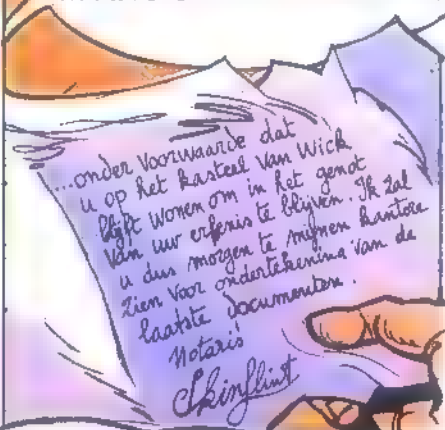 ...onder voorwaarde dat
u op het kasteel van Wick
blijft wonen om in het genot
van uw erfenis te blijven. Ik zal
u dus morgen te mijnen kantore
zien voor ondertekening van de
laatste documenten.
Notaris
Skinflint